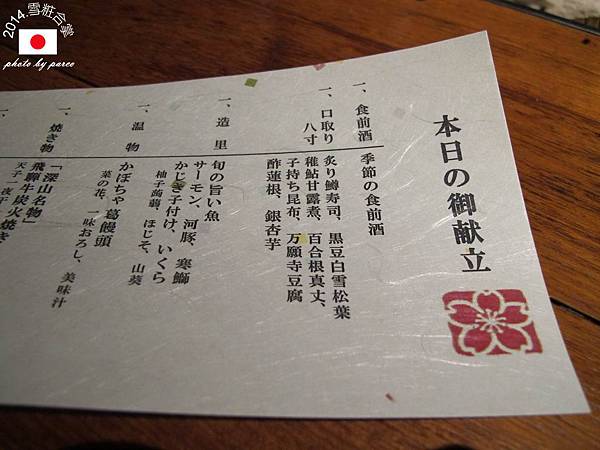 2014.雪粧合掌
photo by parco
本日の御献立
一、食前酒
季節の食前酒
一、口取り
八寸
炙り鱒寿司、黒豆白雪松葉
稚鮎甘露煮、百合根真丈、
子持ち昆布、万願寺豆腐
酢蓮根、銀杏芋
一、造里
旬の旨い魚
サーモン、河豚、寒鰤
かじき子付け、いくら
柚子蒟蒻、ほじそ、山葵
一、温物
かぼちゃ葛饅頭
菜の花、一味おろし、美味汁
一、焼き物
「深山名物」
飛騨牛炭火焼き